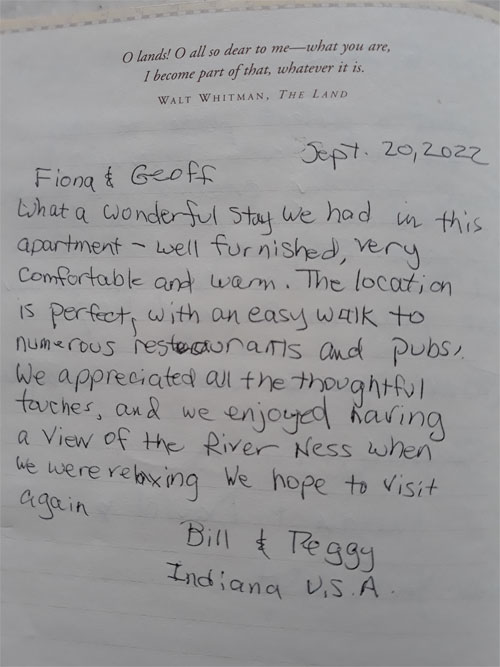 O lands! O all so dear to me—what you are,
I become part of that, whatever it is.
WALT WHITMAN, THE LAND
Sept. 20, 2022
Fiona & Geoff
What a wonderful stay we had in this
apartment - well furnished, very
comfortable and warm. The location
is perfect, with an easy walk to
numerous restaurants and pubs.
We appreciated all the thoughtful
touches, and we enjoyed having
a view of the River Ness when
we were relaxing We hope to visit
again
Bill & Peggy
Indiana U.S.A.